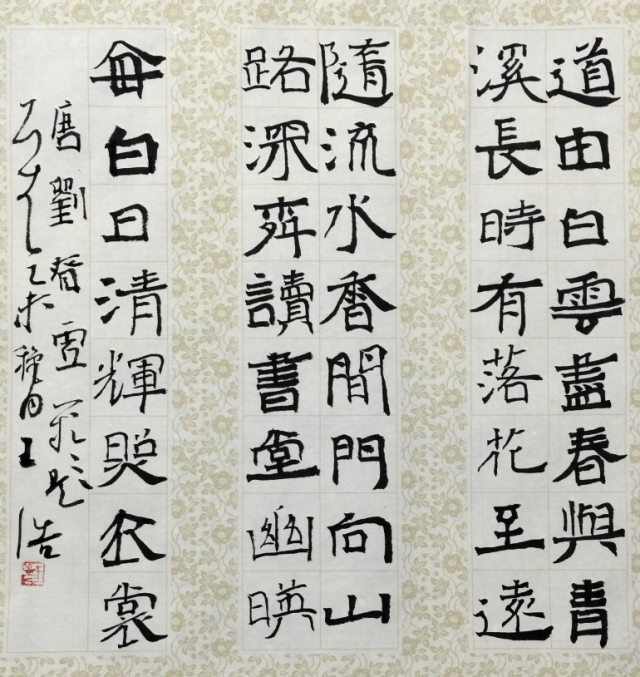 道由白雲盡春與青
溪長時有落花至遠
隨流水香間門向山
路深讀書堂幽暎
每白日清輝照衣裳
唐劉眘虛闕題
乙未穐月王浩